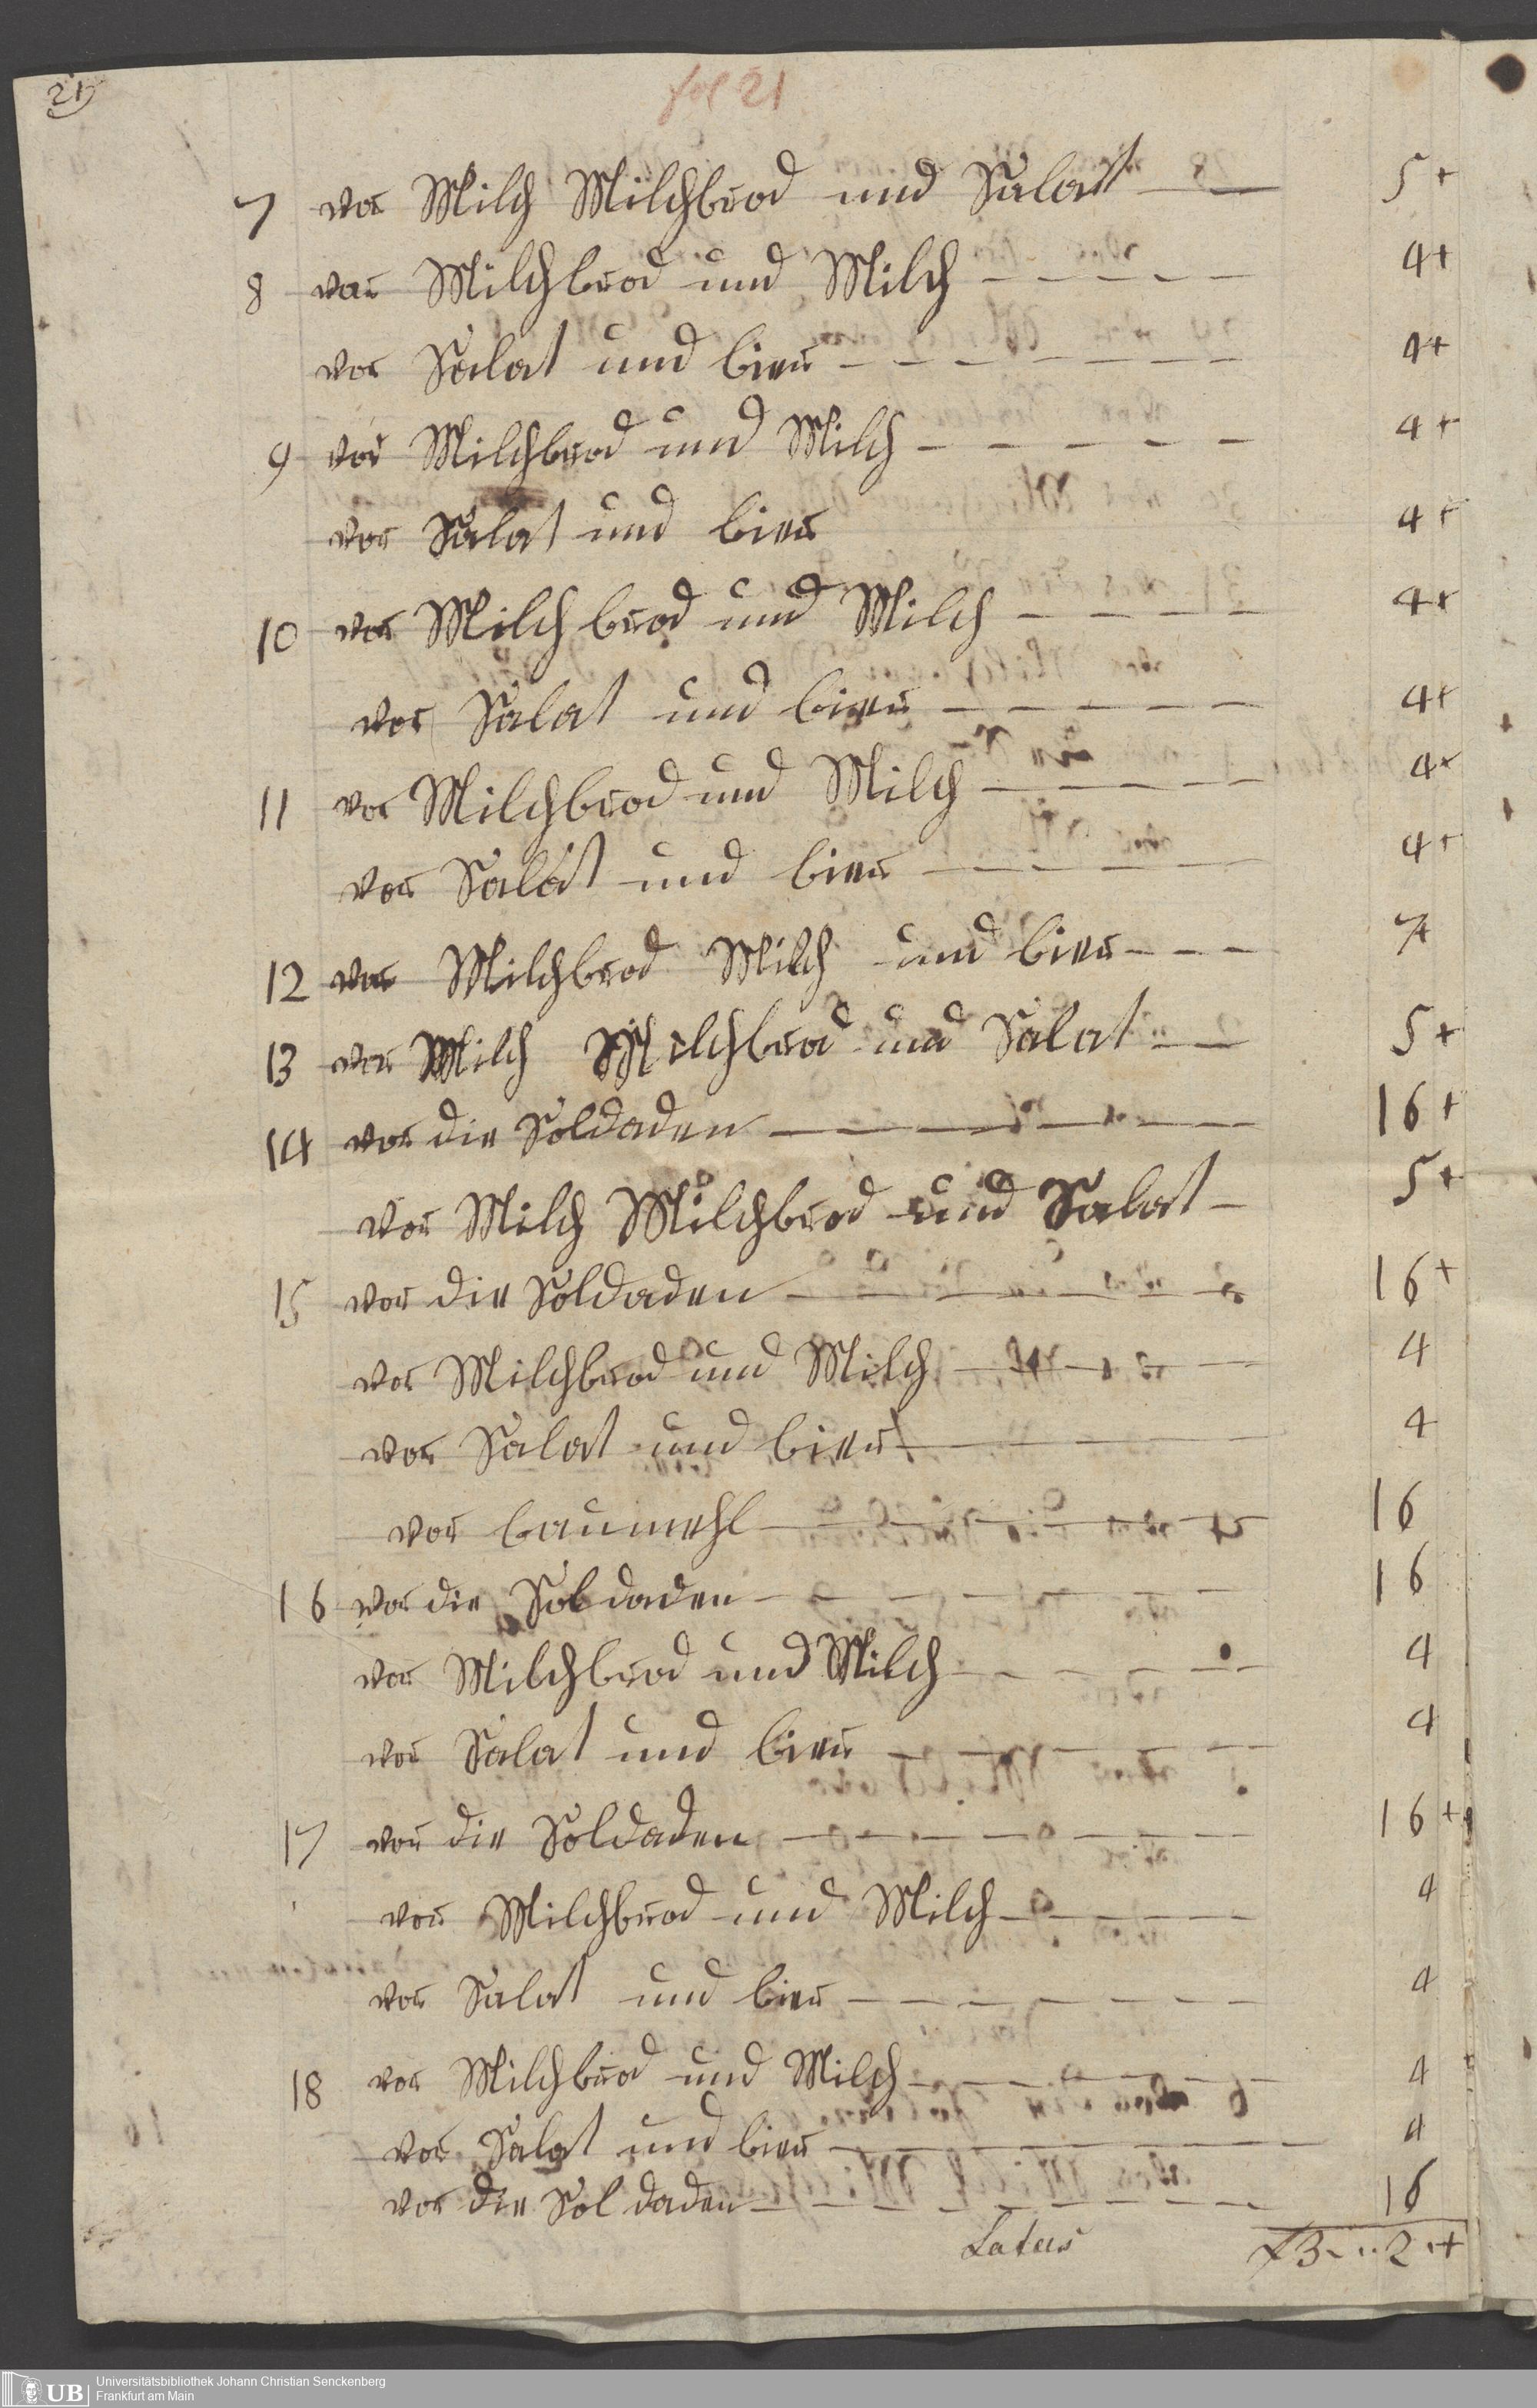 21
fol 21
7 vor Milch Milchbrod und Salat — 5 +
8 vor Milchbrod und Milch - - - - - 4 +
vor Salat und bier - - - - - - 4 +
9 vor Milchbrod und Milch - - - - - 4 +
vor Salat und bier 4 +
10 vor Milchbrod und Milch - - - - 4 +
vor Salat und bier - - - - - 4 +
11 vor Milchbrod und Milch - - - - - 4 +
vor Salat und bier - - - - - 4 +
12 vor Milchbrod Milch und bier - - - 7 +
13 vor Milch Milchbrod und Salat - - 5 +
14 vor die Soldaden - - - - - - 16 +
vor Milch Milchbrod und Salat - 5 +
15 vor die Soldaden - - - - - - 16 +
vor Milchbrod und Milch - - - - 4
vor Salat und bier - - - - - 4
vor baumehl - - - - - - 16
16 vor die Soldaden - - - - - - 16
vor Milchbrod und Milch - - - - - 4
vor Salat und bier - - - - - 4
17 vor die Soldaden - - - - - - 16 +
vor Milchbrod und Milch - - - - 4
vor Salat und bier - - - - - - 4
18 vor Milchbrod und Milch - - - - - 4
vor Salat und bier - - - - - - 4
vor die Soldaden - - - - - - 16
Latus f 3 - .. 2 +
Universitätsbibliothek Johann Christian Senckenberg
UB Frankfurt am Main